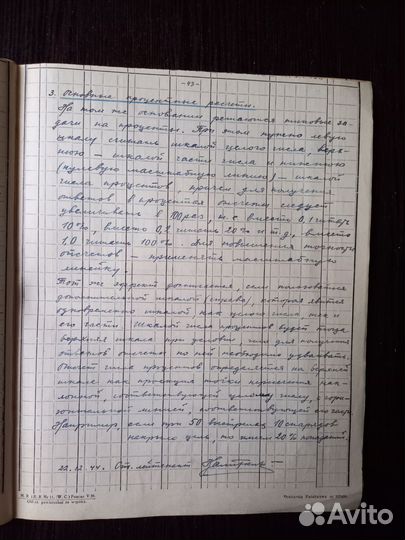 - 43 -
3. Основные процентные расчеты.
На том же основании решаются типовые за-
дачи на проценты. При этом нужно левую
шкалу считать шкалой целого числа, верх-
нюю — шкалой части числа и нижнюю
(нулевую масштабную линию) — шкалой
числа процентов, причем для получения
ответов в процентах отсчеты следует
увеличивать в 100 раз, т.е. вместо 0,1 читать
10%, вместо 0,2 читать 20% и т.д., вместо
1,0 читать 100%. Для повышения точности
отсчетов — применять масштабную
линейку.
Тот же эффект достигается, если пользоваться
дополнительной шкалой (справа), которая явится
одновременно шкалой как целого числа, так и
его части. Шкалой числа процентов будет тогда
верхняя шкала при условии, что для получения
ответов отсчеты по ней необходимо удваивать.
Отсчет числа процентов определяется на верхней
шкале как проекция точки пересечения нак-
лонной, соответствующей целому числу, с гори-
зонтальной линией, соответствующей его части.
Например, если при 50 выстрелах 10 снарядов
накрыло цель, то имеем 20% попаданий.
22.12.44. Ст. лейтенант
Avito